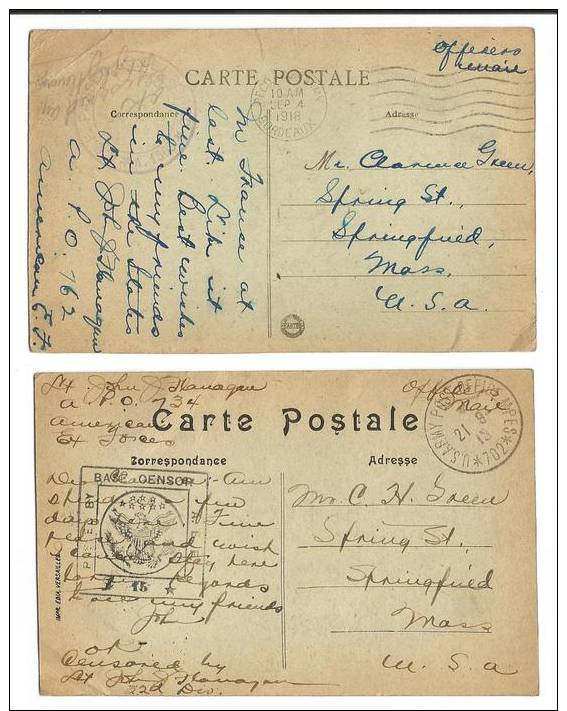 Officers
mail
CARTE POSTALE
10 AM
SEP 4
1918
BORDEAUX
Correspondance
Adresse
In France at
last. Like it
fine. Best wishes
to my friends
in the States
Lt John J Flanagan
A. P. O. 762
American E. F.
Mr. Clarence Green,
Spring St.,
Springfield,
Mass.
U. S. A.
Lt John J Flanagan
A P.O. 734
American
Ex Forces
Officers
Mail
Carte Postale
U.S. ARMY POST OFFICE M.P.E.S. 702
21
8
Correspondance
Adresse
PASSED BY
BASE CENSOR
15
Am
spending a few
days here. Fine
place and wish
I could stay here
regards
to all my friends
John
IMP. EDIA. VERSAILLES
OK
Censored by
Lt John J Flanagan
2d Div.
Mr. C. H. Green
Spring St.,
Springfield
Mass
U. S. A